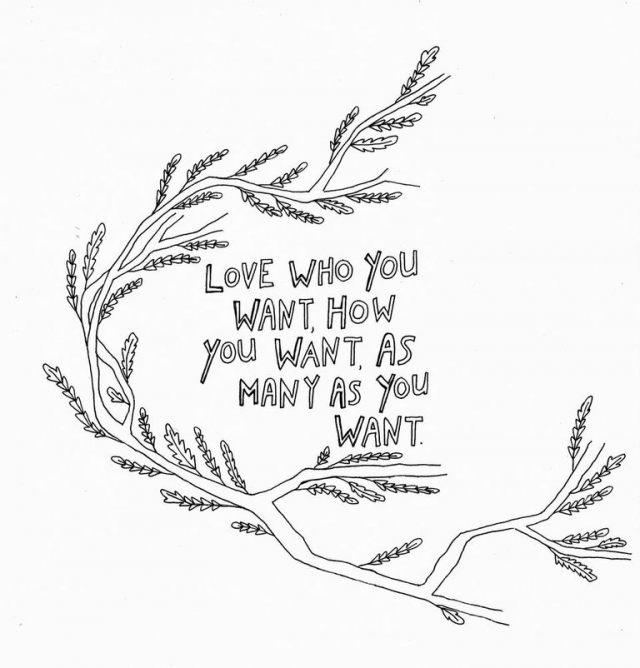 LOVE WHO YOU
WANT, HOW
YOU WANT, AS
MANY AS YOU
WANT.